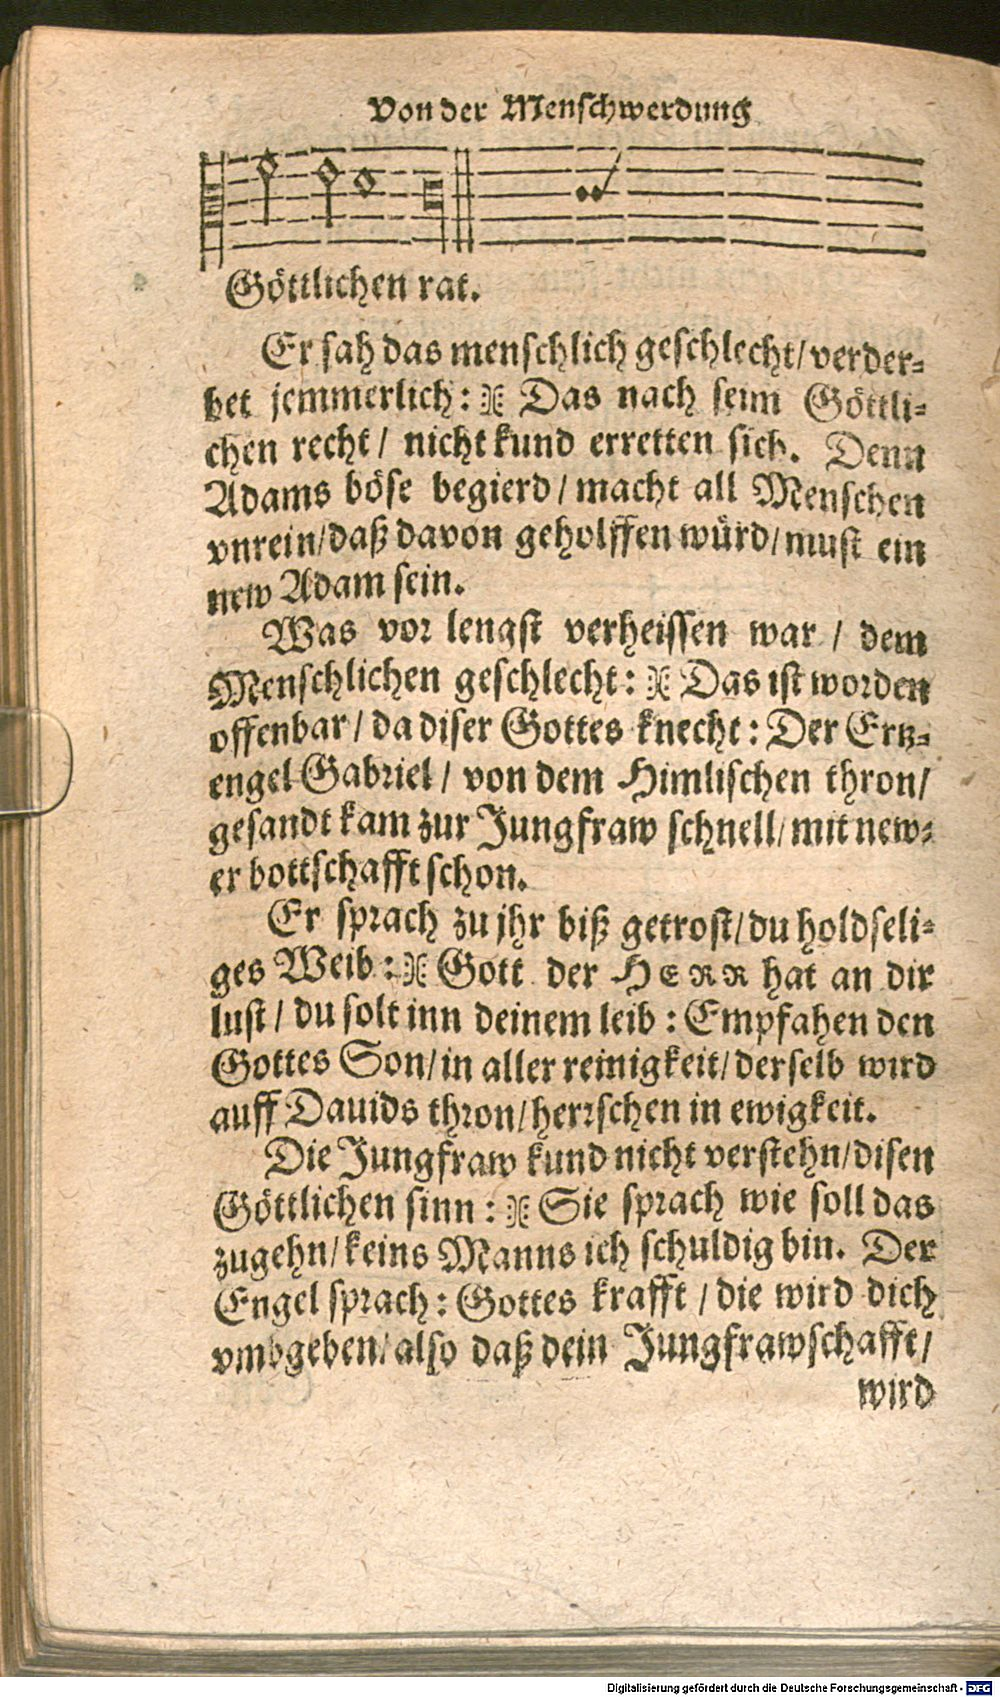 Von der Menschwerdung
Göttlichen rat.
Er sah das menschlich geschlecht/ verder⸗
bet jemmerlich: Das nach seim Göttli⸗
chen recht/ nicht kund erretten sich. Denn
Adams böse begierd/ macht all Menschen
vnrein/ daß davon geholffen würd/ must ein
new Adam sein.
Was vor lengst verheissen war / dem
Menschlichen geschlecht: Das ist worden
offenbar/ da diser Gottes knecht: Der Ertz⸗
engel Gabriel/ von dem Himlischen thron/
gesandt kam zur Jungfraw schnell/ mit new⸗
er bottschafft schon.
Er sprach zu jhr biß getrost/ du holdseli⸗
ges Weib: Gott der HERR hat an dir
lust/ du solt inn deinem leib: Empfahen den
Gottes Son/ in aller reinigkeit/ derselb wird
auff Dauids thron/ herrschen in ewigkeit.
Die Jungfraw kund nicht verstehn/ disen
Göttlichen sinn: Sie sprach wie soll das
zugehn/ keins Manns ich schuldig bin. Der
Engel sprach: Gottes krafft / die wird dich
vmbgeben/ also daß dein Jungfrawschafft/
wird
Digitalisierung gefördert durch die Deutsche Forschungsgemeinschaft - DFG